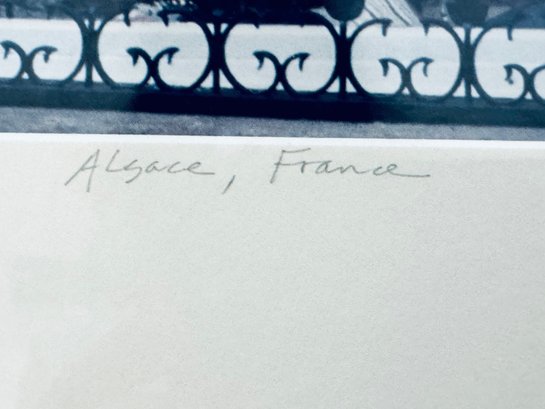 Alsace, France